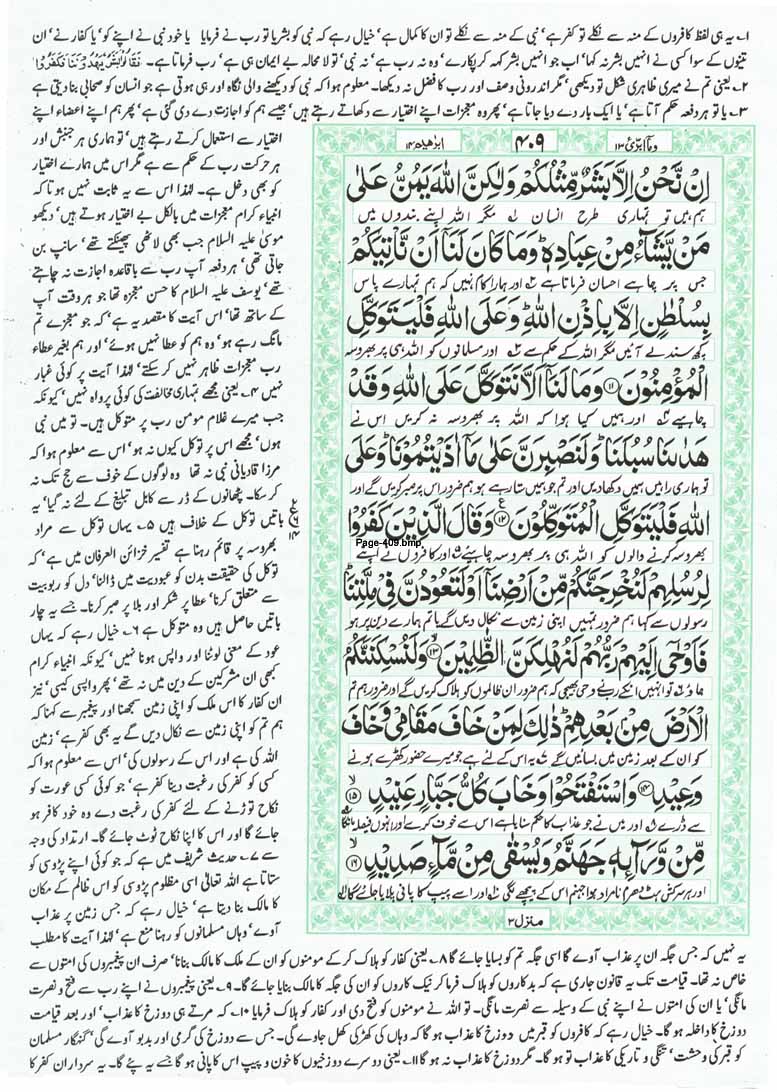 ۱؎ یہ ہی لفظ کافروں کے منہ سے نکلے تو کفر ہے' نبی کے منہ سے نکلے تو ان کا کمال ہے' خیال رہے کہ نبی کو بشر یا تو رب نے فرمایا یا خود نبی نے اپنے کو' یا کفار نے' ان
تینوں کے سوا کسی نے انہیں بشر نہ کہا' اب جو انہیں بشر کہہ کر پکارے' وہ نہ رب ہے' نہ نبی' تو لا محالہ بے ایمان ہی ہے' رب فرماتا ہے۔ فَقَالُوْٓا اَبَشَرٌ یَّهْدُوْنَنَا فَكَفَرُوْا
۲؎ یعنی تم نے میری ظاہری شکل تو دیکھی' مگر اندرونی وصف اور رب کا فضل نہ دیکھا۔ معلوم ہوا کہ نبی کو دیکھنے والی نگاہ اور ہی ہوتی ہے جو انسان کو صحابی بنا دیتی ہے
۳؎ یا تو ہر دفعہ حکم آتا ہے' یا ایک بار دے دیا جاتا ہے' پھر وہ معجزات اپنے اختیار سے دکھاتے رہتے ہیں' جیسے ہم کو اجازت دے دی گئی ہے' پھر ہم اپنے اعضاء اپنے
وما ابرئ ۱۳
۴۰۹
ابرٰهيم ۱۴
اِنْ نَّحْنُ اِلَّا بَشَرٌ مِّثْلُكُمْ وَلٰكِنَّ اللّٰهَ يَمُنُّ عَلٰى
ہم ہیں تو تمہاری طرح انسان مگر اللہ اپنے بندوں میں
مَنْ يَّشَآءُ مِنْ عِبَادِهٖ ؕ وَمَا كَانَ لَنَآ اَنْ نَّاْتِيَكُمْ
جس پر چاہے احسان فرماتا ہے اور ہمارا کام نہیں کہ ہم تمہارے پاس
بِسُلْطٰنٍ اِلَّا بِاِذْنِ اللّٰهِ ؕ وَعَلَى اللّٰهِ فَلْيَتَوَكَّلِ
کچھ سند لے آئیں مگر اللہ کے حکم سے اور مسلمانوں کو اللہ ہی پر بھروسہ
الْمُؤْمِنُوْنَ ﴿۱۱﴾ وَمَا لَنَآ اَلَّا نَتَوَكَّلَ عَلَى اللّٰهِ وَقَدْ
چاہیے اور ہمیں کیا ہوا کہ اللہ پر بھروسہ نہ کریں اس نے
هَدٰىنَا سُبُلَنَا ؕ وَلَنَصْبِرَنَّ عَلٰى مَآ اٰذَيْتُمُوْنَا ؕ وَعَلَى
تو ہماری راہیں ہمیں دکھا دیں اور تم جو ہمیں ستا رہے ہو ہم ضرور اس پر صبر کریں گے اور
اللّٰهِ فَلْيَتَوَكَّلِ الْمُتَوَكِّلُوْنَ ﴿۱۲﴾ وَقَالَ الَّذِيْنَ كَفَرُوْا
Page-409.bmp
بھروسہ کرنے والوں کو اللہ ہی پر بھروسہ چاہیئے اور کافروں نے اپنے
لِرُسُلِهِمْ لَنُخْرِجَنَّكُمْ مِّنْ اَرْضِنَآ اَوْ لَتَعُوْدُنَّ فِيْ مِلَّتِنَا ؕ
رسولوں سے کہا ہم ضرور تمہیں اپنی زمین سے نکال دیں گے یا تم ہمارے دین پر ہو
فَاَوْحٰٓى اِلَيْهِمْ رَبُّهُمْ لَنُهْلِكَنَّ الظّٰلِمِيْنَ ﴿۱۳﴾ وَلَنُسْكِنَنَّكُمُ
جاؤ تو انہیں انکے رب نے وحی بھیجی کہ ہم ضرور ان ظالموں کو ہلاک کریں گے اور ضرور ہم تم
الْاَرْضَ مِنْۢ بَعْدِهِمْ ؕ ذٰلِكَ لِمَنْ خَافَ مَقَامِيْ وَخَافَ
کو ان کے بعد زمین میں بسائیں گے یہ اس کے لئے ہے جو میرے حضور کھڑے ہونے
وَعِيْدِ ﴿۱۴﴾ وَاسْتَفْتَحُوْا وَخَابَ كُلُّ جَبَّارٍ عَنِيْدٍ ﴿۱۵﴾
سے ڈرے اور میں نے جو عذاب کا حکم سنایا ہے اس سے خوف کرے اور انہوں نے فیصلہ مانگا
مِّنْ وَّرَآئِهٖ جَهَنَّمُ وَيُسْقٰى مِنْ مَّآءٍ صَدِيْدٍ ﴿۱۶﴾
اور ہر سرکش ہٹ دھرم نامراد ہوا جہنم اس کے پیچھے لگی اور اسے پیپ کا پانی پلایا جائے گا
منزل ۳
اختیار سے استعمال کرتے رہتے ہیں' تو ہماری ہر جنبش اور
ہر حرکت رب کے حکم سے ہے مگر اس میں ہمارے اختیار
کو بھی دخل ہے۔ لہٰذا اس سے یہ ثابت نہیں ہوتا کہ
انبیاء کرام معجزات میں بالکل بے اختیار ہوتے ہیں' دیکھو
موسیٰ علیہ السلام جب بھی لاٹھی پھینکتے تھے' سانپ بن
جاتی تھی' ہر دفعہ آپ رب سے باقاعدہ اجازت نہ چاہتے
تھے' یوسف علیہ السلام کا حسن معجزہ تھا جو ہر وقت آپ
کے ساتھ تھا' اس آیت کا مقصد یہ ہے' کہ جو معجزے تم
مانگ رہے ہو' وہ ہم کو عطا نہیں ہوئے' اور ہم بغیر عطاء
رب معجزات ظاہر نہیں کر سکتے' لہٰذا آیت پر کوئی غبار
نہیں ۴؎ یعنی مجھے تمہاری مخالفت کی کوئی پرواہ نہیں' کیونکہ
جب میرے غلام مومن رب پر متوکل ہیں۔ تو میں نبی
ہوں' مجھے اس پر توکل کیوں نہ ہو' اس سے معلوم ہوا کہ
مرزا قادیانی نبی نہ تھا وہ لوگوں کے خوف سے حج تک نہ
کر سکا۔ پٹھانوں کے ڈر سے کابل تبلیغ کے لئے نہ گیا' یہ
باتیں توکل کے خلاف ہیں ۵؎ یہاں توکل سے مراد
بھروسہ پر قائم رہنا ہے تفسیر خزائن العرفان میں ہے' کہ
توکل کی حقیقت بدن کو عبودیت میں ڈالنا' دل کو ربوبیت
سے متعلق کرنا' عطا پر شکر اور بلا پر صبر کرنا۔ جسے یہ چار
باتیں حاصل ہیں وہ متوکل ہے ۶؎ خیال رہے کہ یہاں
عود کے معنی لوٹنا اور واپس ہونا نہیں' کیونکہ انبیاء کرام
کبھی ان مشرکین کے دین میں نہ تھے' پھر واپسی کیسی' نیز
ان کفار کا اس ملک کو اپنی زمین سمجھنا اور پیغمبر سے کہنا کہ
ہم تم کو اپنی زمین سے نکال دیں گے یہ بھی کفر ہے' زمین
اللہ کی ہے اور اس کے رسولوں کی' اس سے معلوم ہوا کہ
کسی کو کفر کی رغبت دینا کفر ہے' جو کوئی کسی عورت کو
نکاح توڑنے کے لئے کفر کی رغبت دے وہ خود کافر ہو
جائے گا اور اس کا اپنا نکاح ٹوٹ جائے گا۔ ارتداد کی وجہ
سے ۷؎ حدیث شریف میں ہے کہ جو کوئی اپنے پڑوسی کو
ستاتا ہے اللہ تعالیٰ اسی مظلوم پڑوسی کو اس ظالم کے مکان
کا مالک بنا دیتا ہے' خیال رہے کہ جس زمین پر عذاب
آوے' وہاں مسلمانوں کو رہنا منع ہے' لہٰذا آیت کا مطلب
یہ نہیں کہ جس جگہ ان پر عذاب آوے گا اسی جگہ تم کو بسایا جائے گا ۸؎ یعنی کفار کو ہلاک کر کے مومنوں کو ان کے ملک کا مالک بنانا' صرف ان پیغمبروں کی امتوں سے
خاص نہ تھا۔ قیامت تک یہ قانون جاری ہے کہ بدکاروں کو ہلاک فرما کر نیک کاروں کو ان کی جگہ کا مالک بنایا جائے گا۔ ۹؎ یعنی پیغمبروں نے اپنے رب سے فتح و نصرت
مانگی' یا ان کی امتوں نے اپنے نبی کے وسیلہ سے نصرت مانگی۔ تو اللہ نے مومنوں کو فتح دی اور کفار کو ہلاک فرمایا ۱۰؎ کہ مرتے ہی دوزخ کا عذاب' اور بعد قیامت
دوزخ کا داخلہ ہو گا۔ خیال رہے کہ کافروں کو قبر میں دوزخ کا عذاب ہو گا کہ وہاں کی کھڑکی کھل جاوے گی۔ جس سے دوزخ کی گرمی اور بدبو آوے گی' گنہگار مسلمان
کو قبر کی وحشت' تنگی و تاریکی کا عذاب تو ہو گا۔ مگر دوزخ کا عذاب نہ ہو گا ۱۱؎ یعنی دوسرے دوزخیوں کا خون و پیپ اس کا پانی ہو گا جسے یہ پئے گا۔ یہ سرداران کفر کا